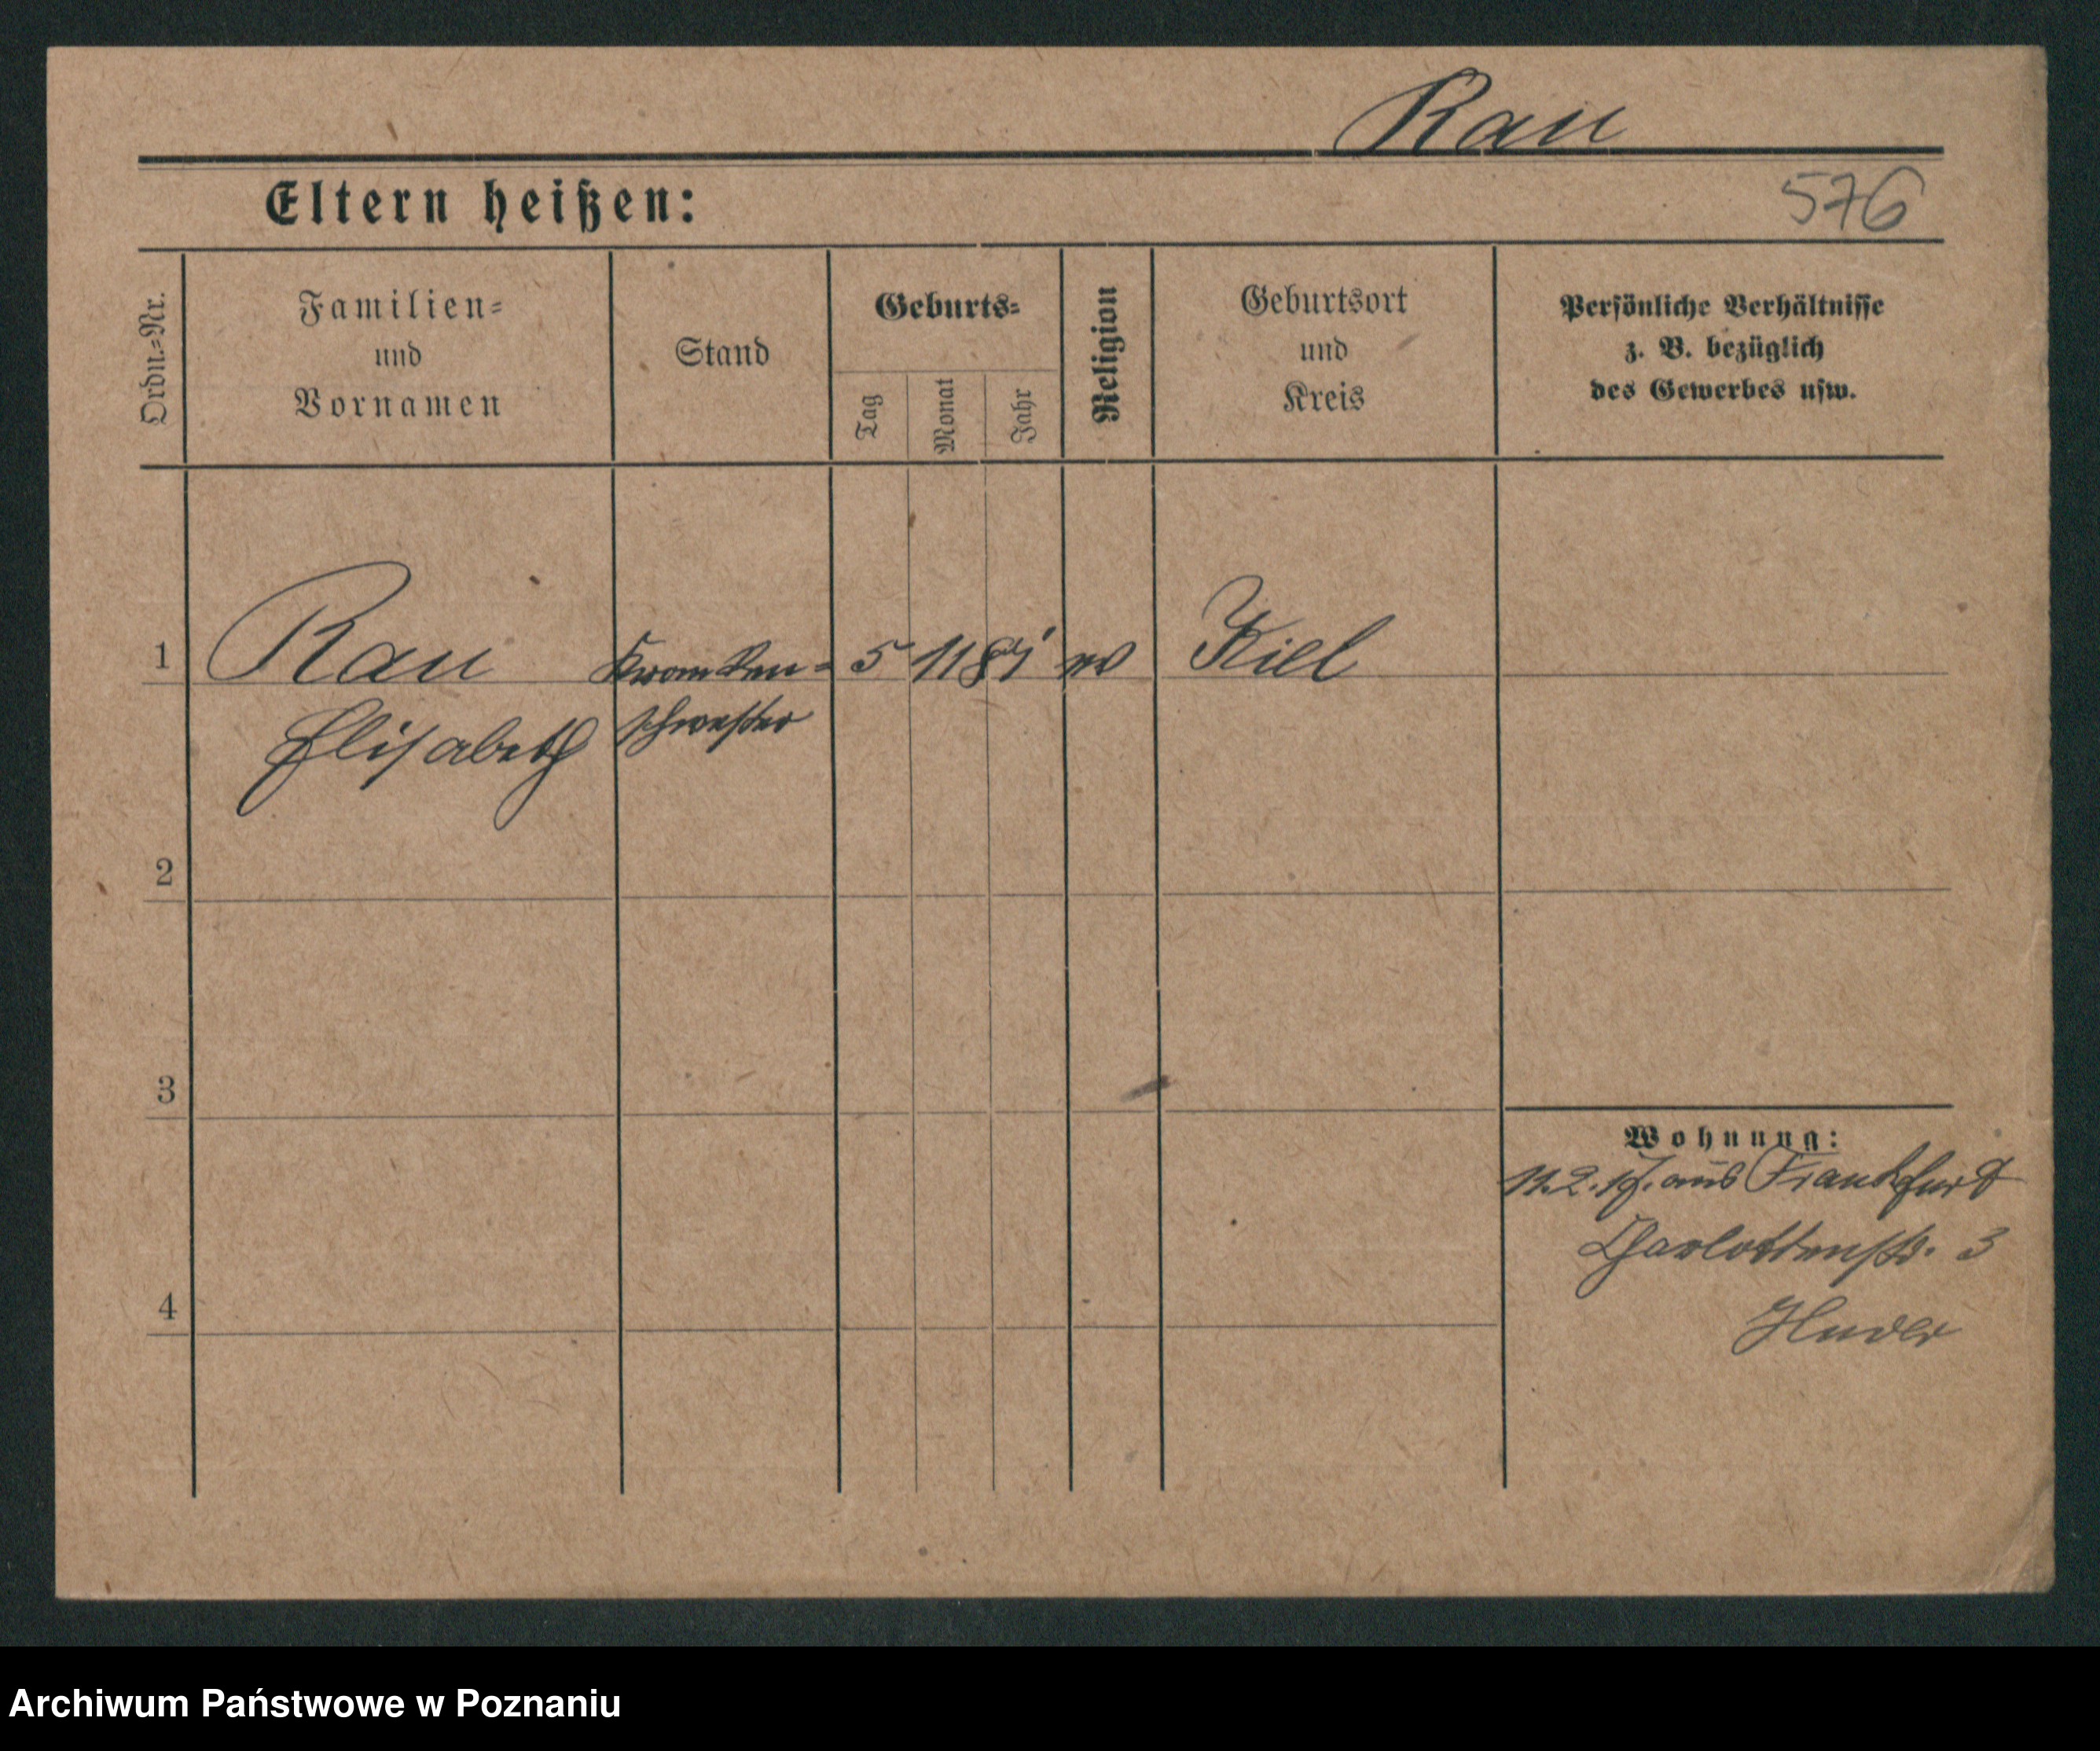 Rau
Eltern heißen:
576
Ordn.=Nr.
Familien=
und
Vornamen
Stand
Geburts=
Tag
Monat
Jahr
Religion
Geburtsort
und
Kreis
Persönliche Verhältnisse
z. B. bezüglich
des Gewerbes usw.
1 Rau Kranken= 5 11 81 ev Kiel
Elisabeth schwester
2
3
4
Wohnung:
11.2.19. aus Frankfurt
Charlottenstr. 3
Archiwum Państwowe w Poznaniu